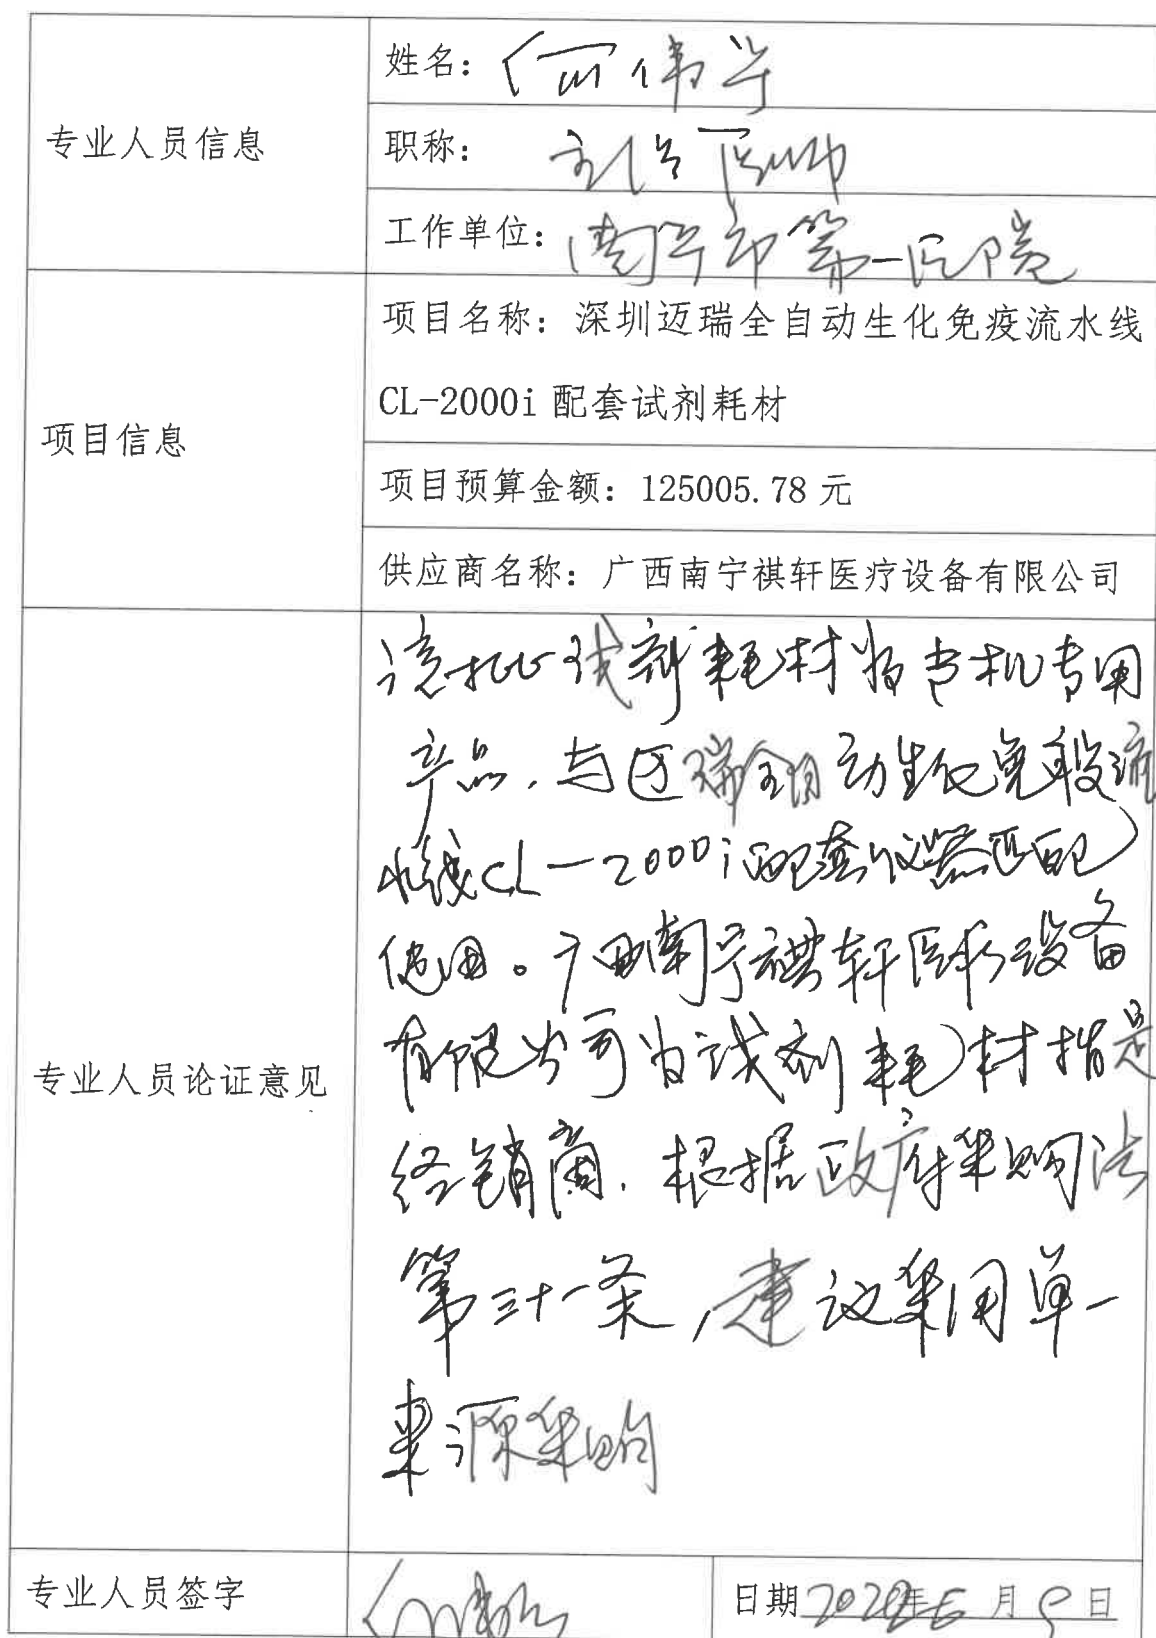 专业人员信息
姓名：何伟
职称：主治医师
工作单位：南宁市第一医院
项目信息
项目名称：深圳迈瑞全自动生化免疫流水线
CL-2000i 配套试剂耗材
项目预算金额：125005.78 元
供应商名称：广西南宁祺轩医疗设备有限公司
专业人员论证意见
该批试剂耗材为专机专用
产品，与迈瑞全自动生化免疫流
水线CL-2000i配套仪器匹配
使用。广西南宁祺轩医疗设备
有限公司为试剂耗材指定
经销商，根据政府采购法
第三十一条，建议采用单一
来源采购
专业人员签字
日期 年 月 9 日